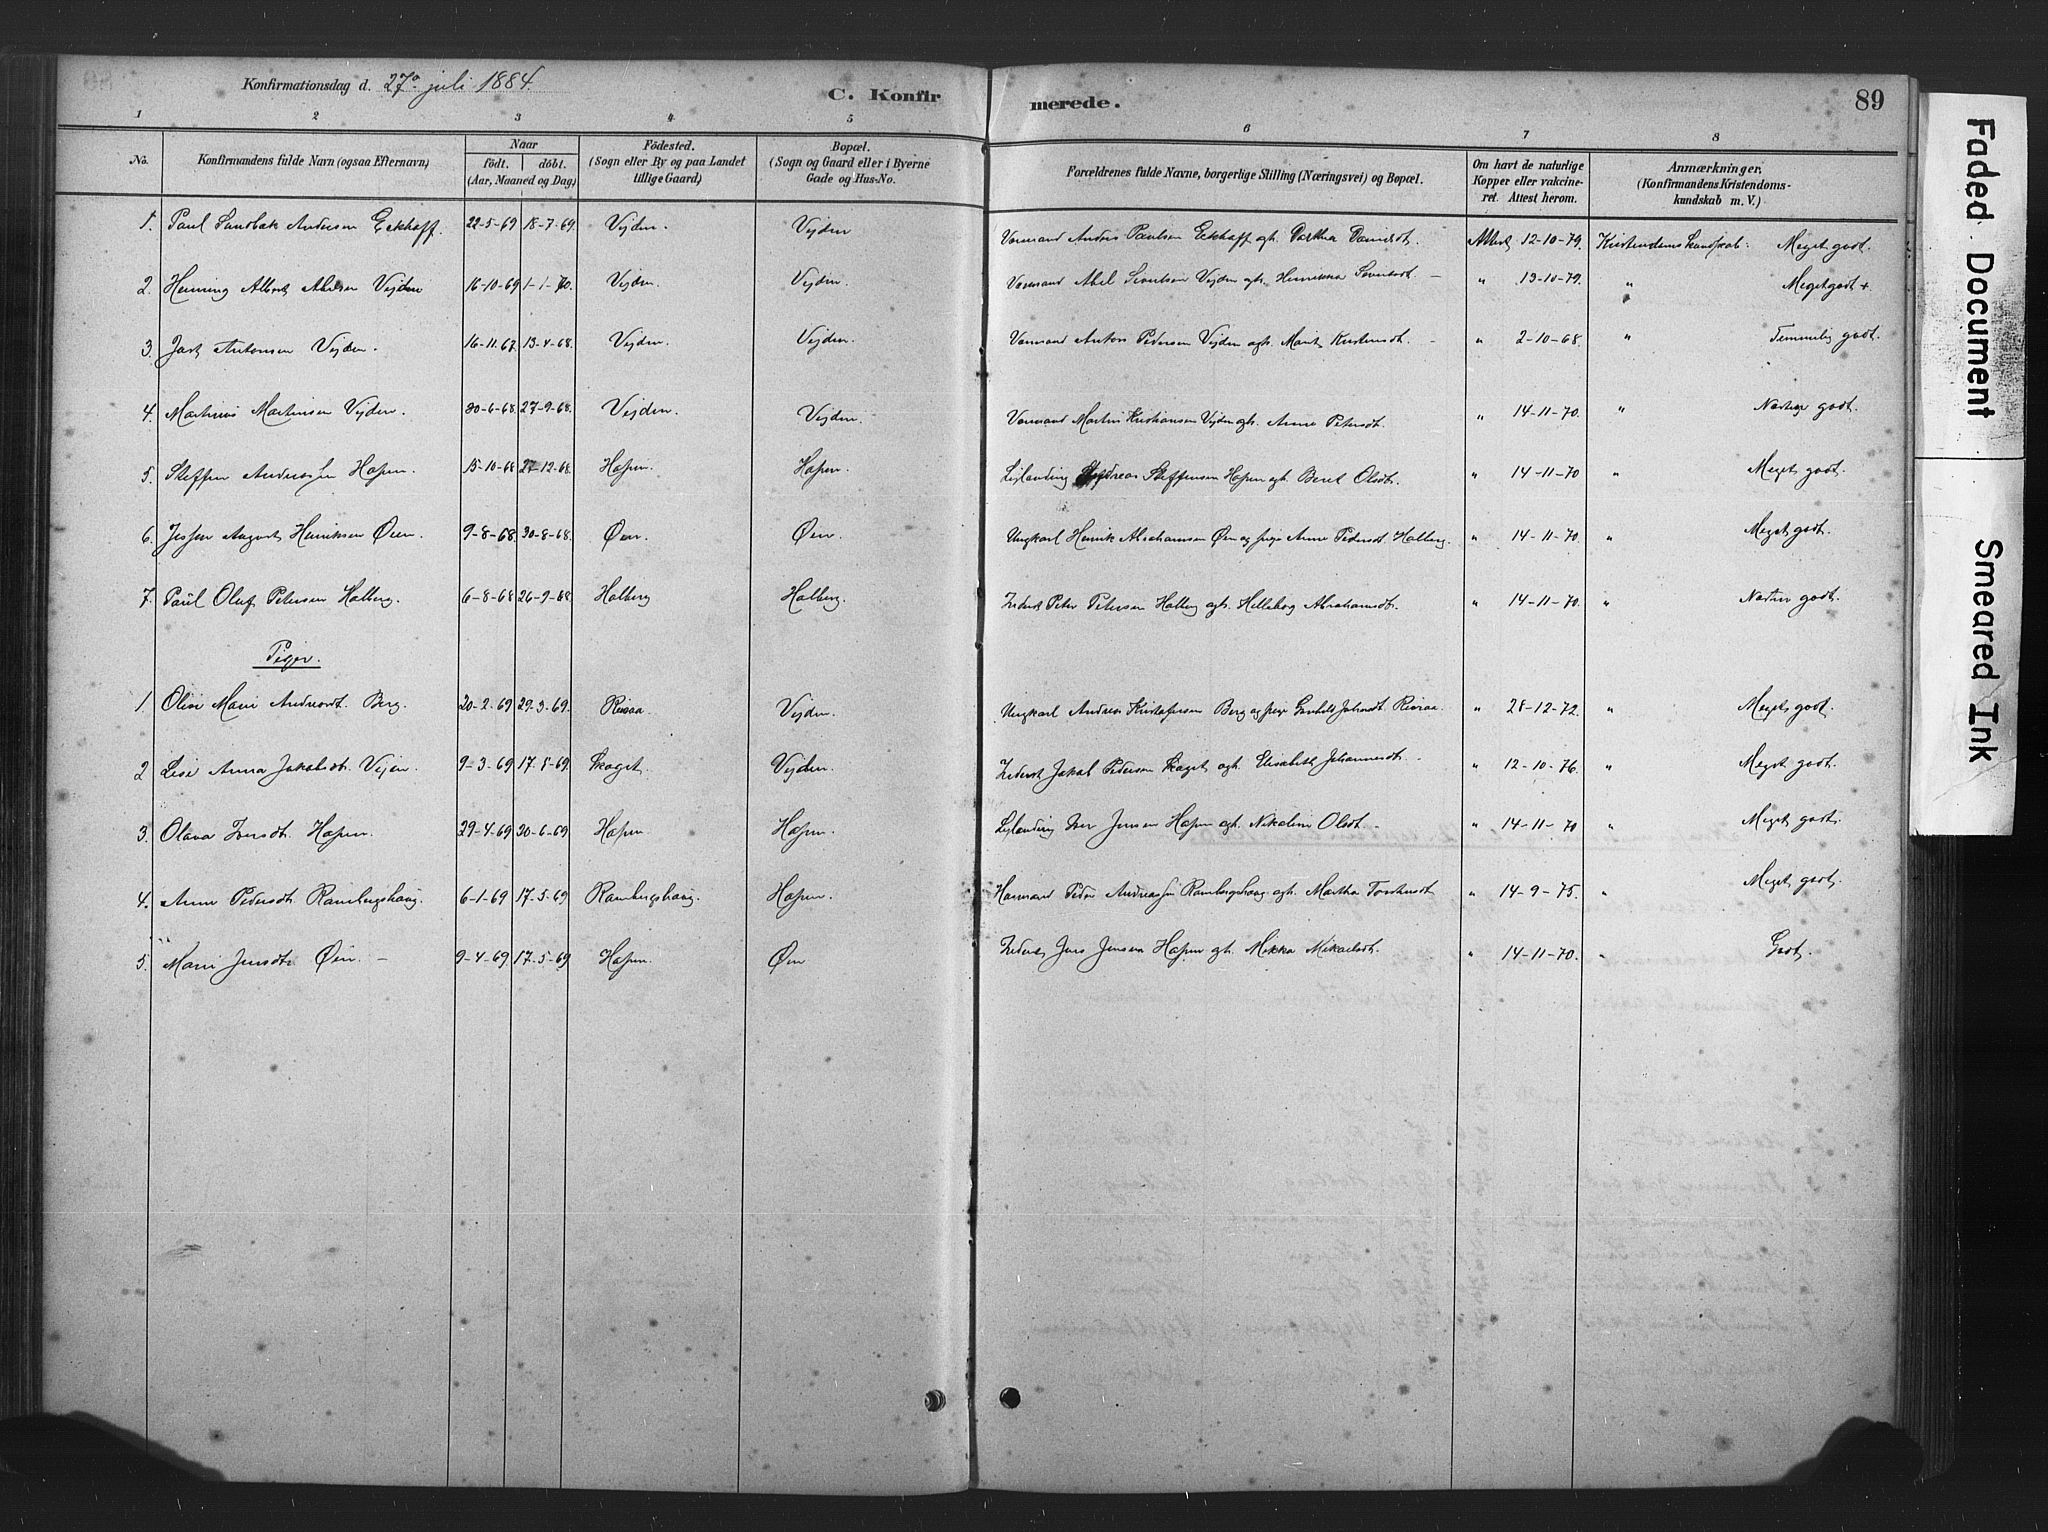 Konfirmationsdag d. 27º juli 1884.
C. Konfirmerede.
89
1 2 3 4 5 6 7 8
No. Konfirmandens fulde Navn (ogsaa Efternavn) Naar födt. döbt. (Aar, Maaned og Dag) Födested. (Sogn eller By og paa Landet tillige Gaard) Bopæl. (Sogn og Gaard eller i Byerne Gade og Hus-No. Forældrenes fulde Navne, borgerlige Stilling (Næringsvei) og Bopæl. Om havt de naturlige Kopper eller vakcineret. Attest herom. Anmærkninger. (Konfirmandens Kristendomskundskab m. V.)
1. Paul Sandbak Andersen Eckhoff. 22-5-69 18-7-69. Vejden. Vejden Anders Paulsen Eckhoff gh. Attest 12-10-79. Kristendomskundskab. Meget godt.
2. Henning Albert Abelsen Vejden 16-10-69 1-1-70. Vejden. Vejden. Abel Vejden gh. " 13-10-79. " Meget godt +
3. Antonsen Vejden. 16-11-67. 13-4-68. Vejden. Vejden. Anton Pedersen Vejden gh. Marit - " 2-10-68. " Temmelig godt.
4. Martinus Martinsen Vejden. 30-6-68. 27-9-68. Vejden. Vejden. Martin Kristiansen Vejden gh. Anne Petersdt. " 14-11-70. " godt.
5. Steffen Andreassen Hopen. 15-10-68 27-12-68. Hopen. Hopen. Leylending Andreas Steffensen Hopen gh. Beret Olsdt. " 14-11-70 " Meget godt.
6. August Henriksen Øien. 9-8-68. 30-8-68. Øien. Øien. Ungkarl Henrik Abrahamsen Øien og pige Anne Pedersdt Holberg. " 14-11-70. " Meget godt.
7. Paul Oluf Petersen Holberg. 6-8-68 26-9-68 Holberg Holberg. Inderst Peter Petersen Holberg gh. Helleborg Abrahamsdt. " 14-11-70. " godt.
Piger.
1 Mari Andreasdt. Berg. 20-2-69 29-3-69. Vejden. Ungkarl Andreas Kristofersen Berg og pige " 28-12-72. " Meget godt.
2 Anna Jakobsdt. Vejen. 9-3-69 17-5-69. Skaget. Vejden. Inderst Jakob Pedersen Skaget gh. Elisabeth Johannesdt - " 12-10-76. " Meget godt.
3. Olava Iversdt. Hopen. 29-4-69 20-6-69 Hopen Hopen. Leylending Iver Jensen Hopen gh. Nikoline Olsdt - " 14-11-70 " Meget godt.
4. Anne Pedersdt. Rambergshaug. 6-1-69 17-5-69 Rambergshaug. Hopen. Peder Andreassen Rambergshaug gh. Martha " 14-9-75. " Meget godt.
5. Mari Jensdt. Øien. - 9-4-69 17-5-69 Hopen. Øien Inderst Jens Jensen Hopen gh. Mikka Mikaelsdt. " 14-11-70. " Godt.
Faded Document
Smeared Ink